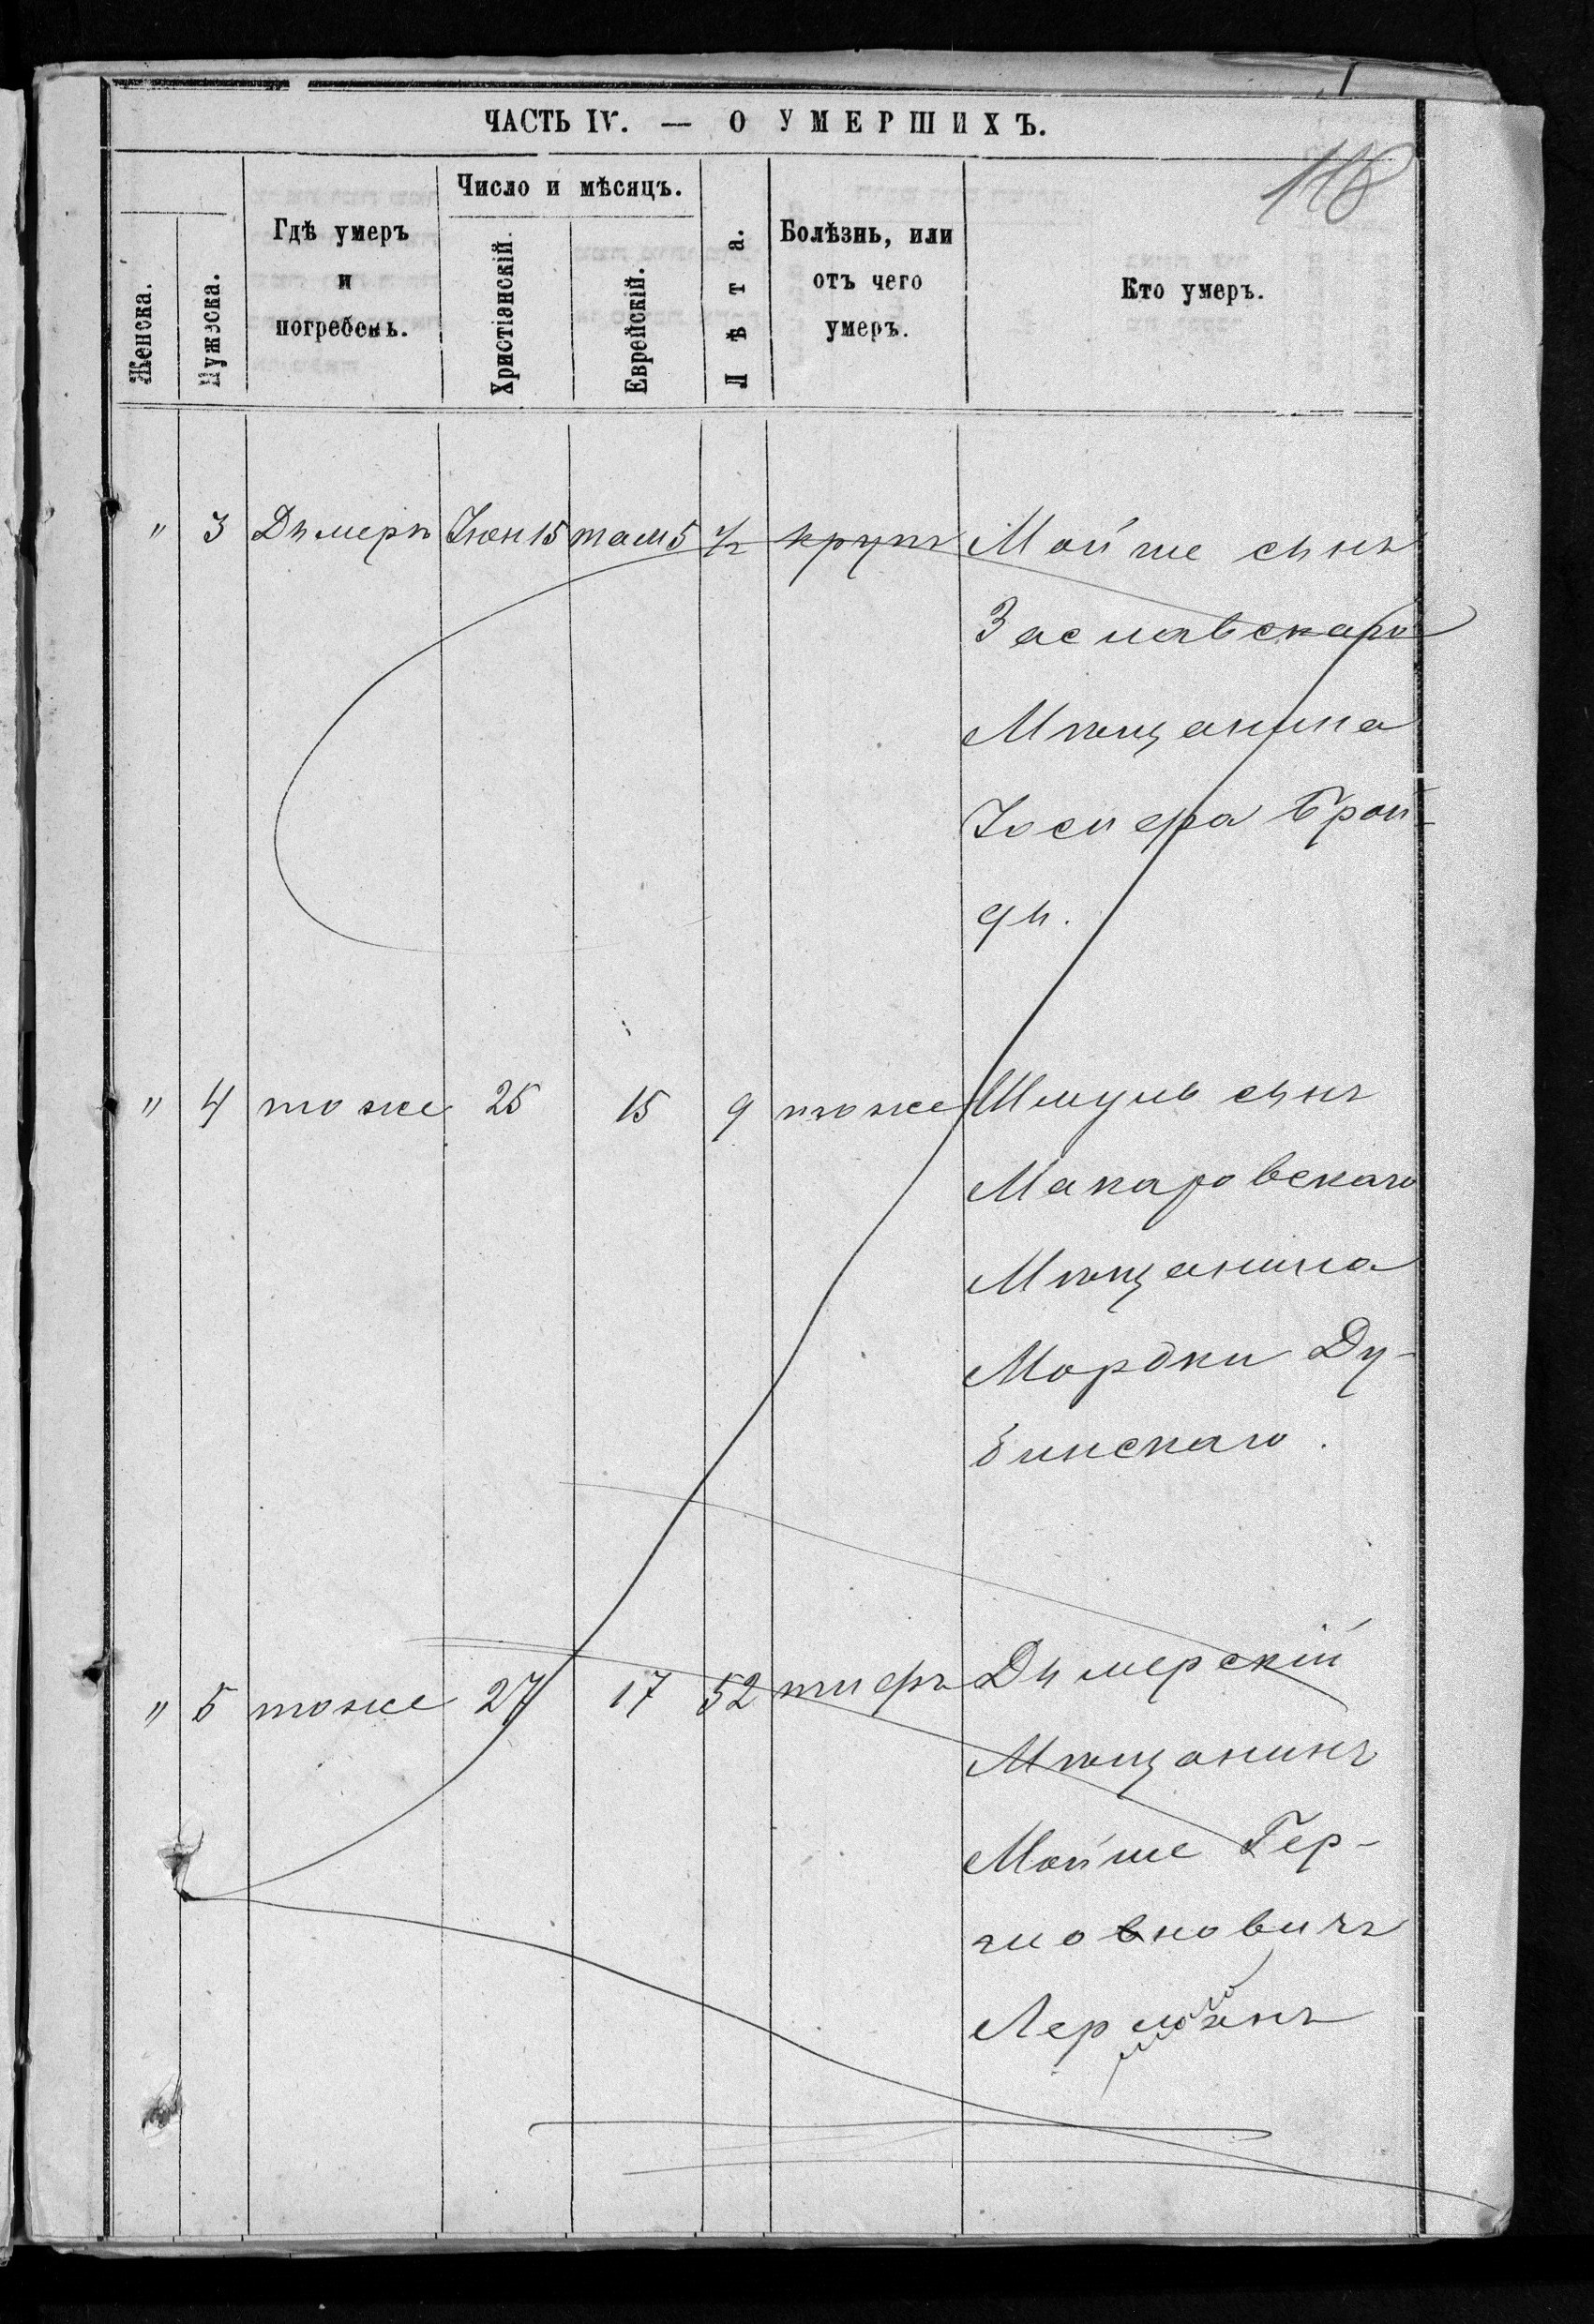 ЧАСТЬ IV. — О УМЕРШИХЪ.
118
Женска.
Мужеска.
Гдѣ умеръ
и
погребенъ.
Число и мѣсяцъ.
Христіанскій.
Еврейскій.
Лѣта.
Болѣзнь, или
отъ чего
умеръ.
Кто умеръ.
" 3 Дымеръ Іюн 15 там 5 1/2 крупъ Мойше сынъ
Заславскаго
Мѣщанина
Іосифа Брон-
ды.
" 4 тоже 25 15 9 тоже Шмуль сынъ
Макаровскаго
Мѣщанина
Мордки Ду-
бинскаго.
" 5 тоже 27 17 52 тифъ Дымерскій
Мѣщанинъ
Мойше Гер-
Лерманъ